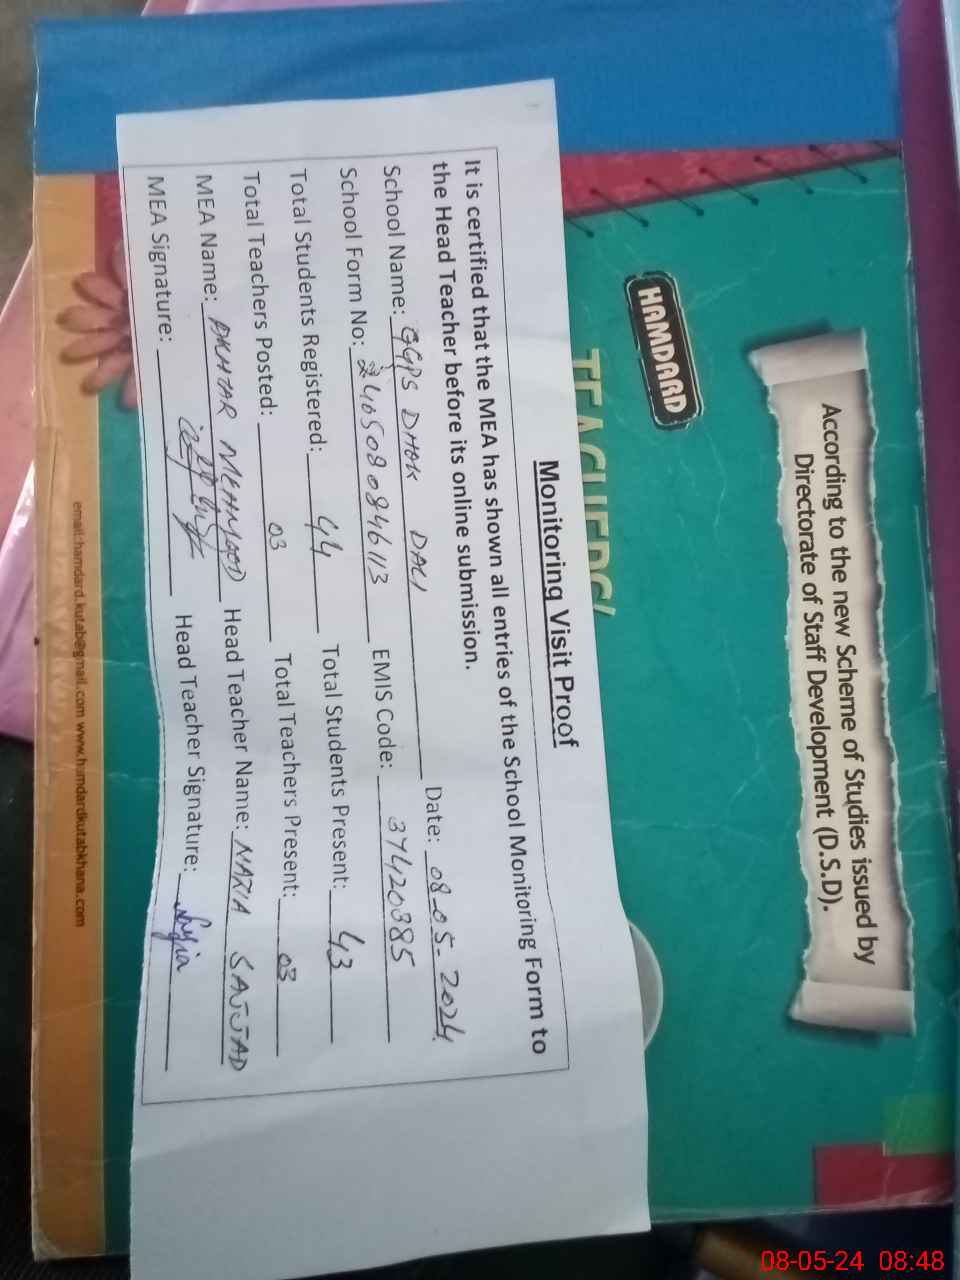 According to the new Scheme of Studies issued by
Directorate of Staff Development (D.S.D).
HAMDARD
TEACHERS'
Monitoring Visit Proof
It is certified that the MEA has shown all entries of the School Monitoring Form to
the Head Teacher before its online submission.
School Name: GGPS DHOK DALI Date: 08-05-2024
School Form No: 2405080846113 EMIS Code: 37420385
Total Students Registered: 44 Total Students Present: 43
Total Teachers Posted: 03 Total Teachers Present: 03
MEA Name: AKHTAR MEHMOOD Head Teacher Name: MARIA SAJJAD
MEA Signature: Head Teacher Signature:
email:hamdard.kutab@gmail.com www.hamdardkutabkhana.com
08-05-24 08:48